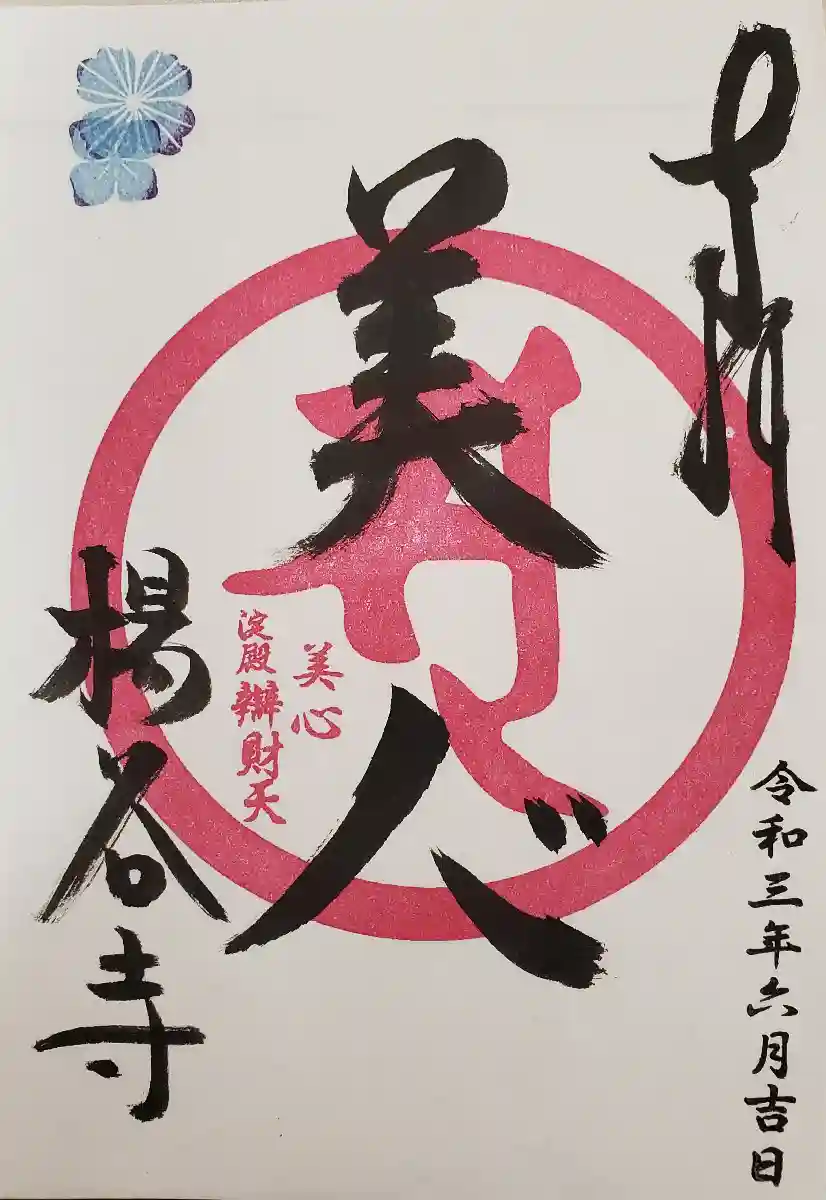 奉拝
令和三年六月吉日
美人
美心
淀殿辯財天
楊谷寺